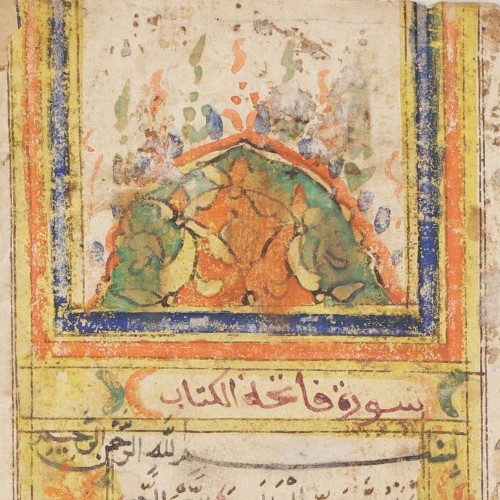 سورة فاتحة الكتاب
بسم الله الرحمن الرحيم